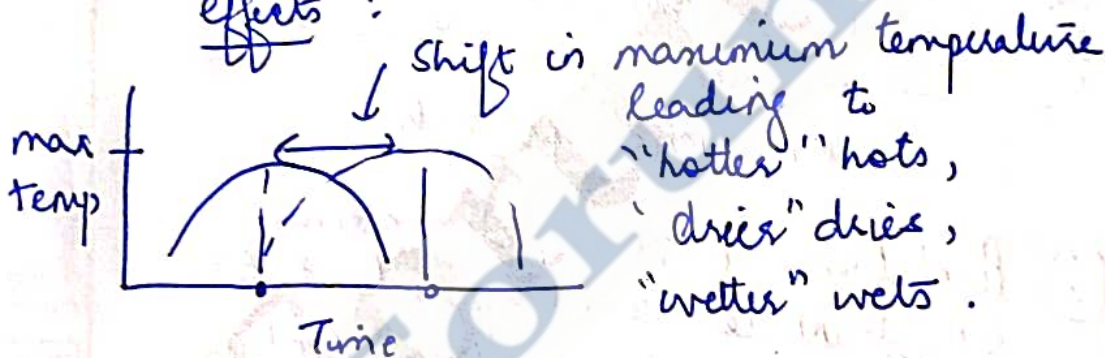 effects :
Shift in maximum temperature
leading to
"hotter" hots,
"drier" dries,
"wetter" wets.
max
temp
Time
forum